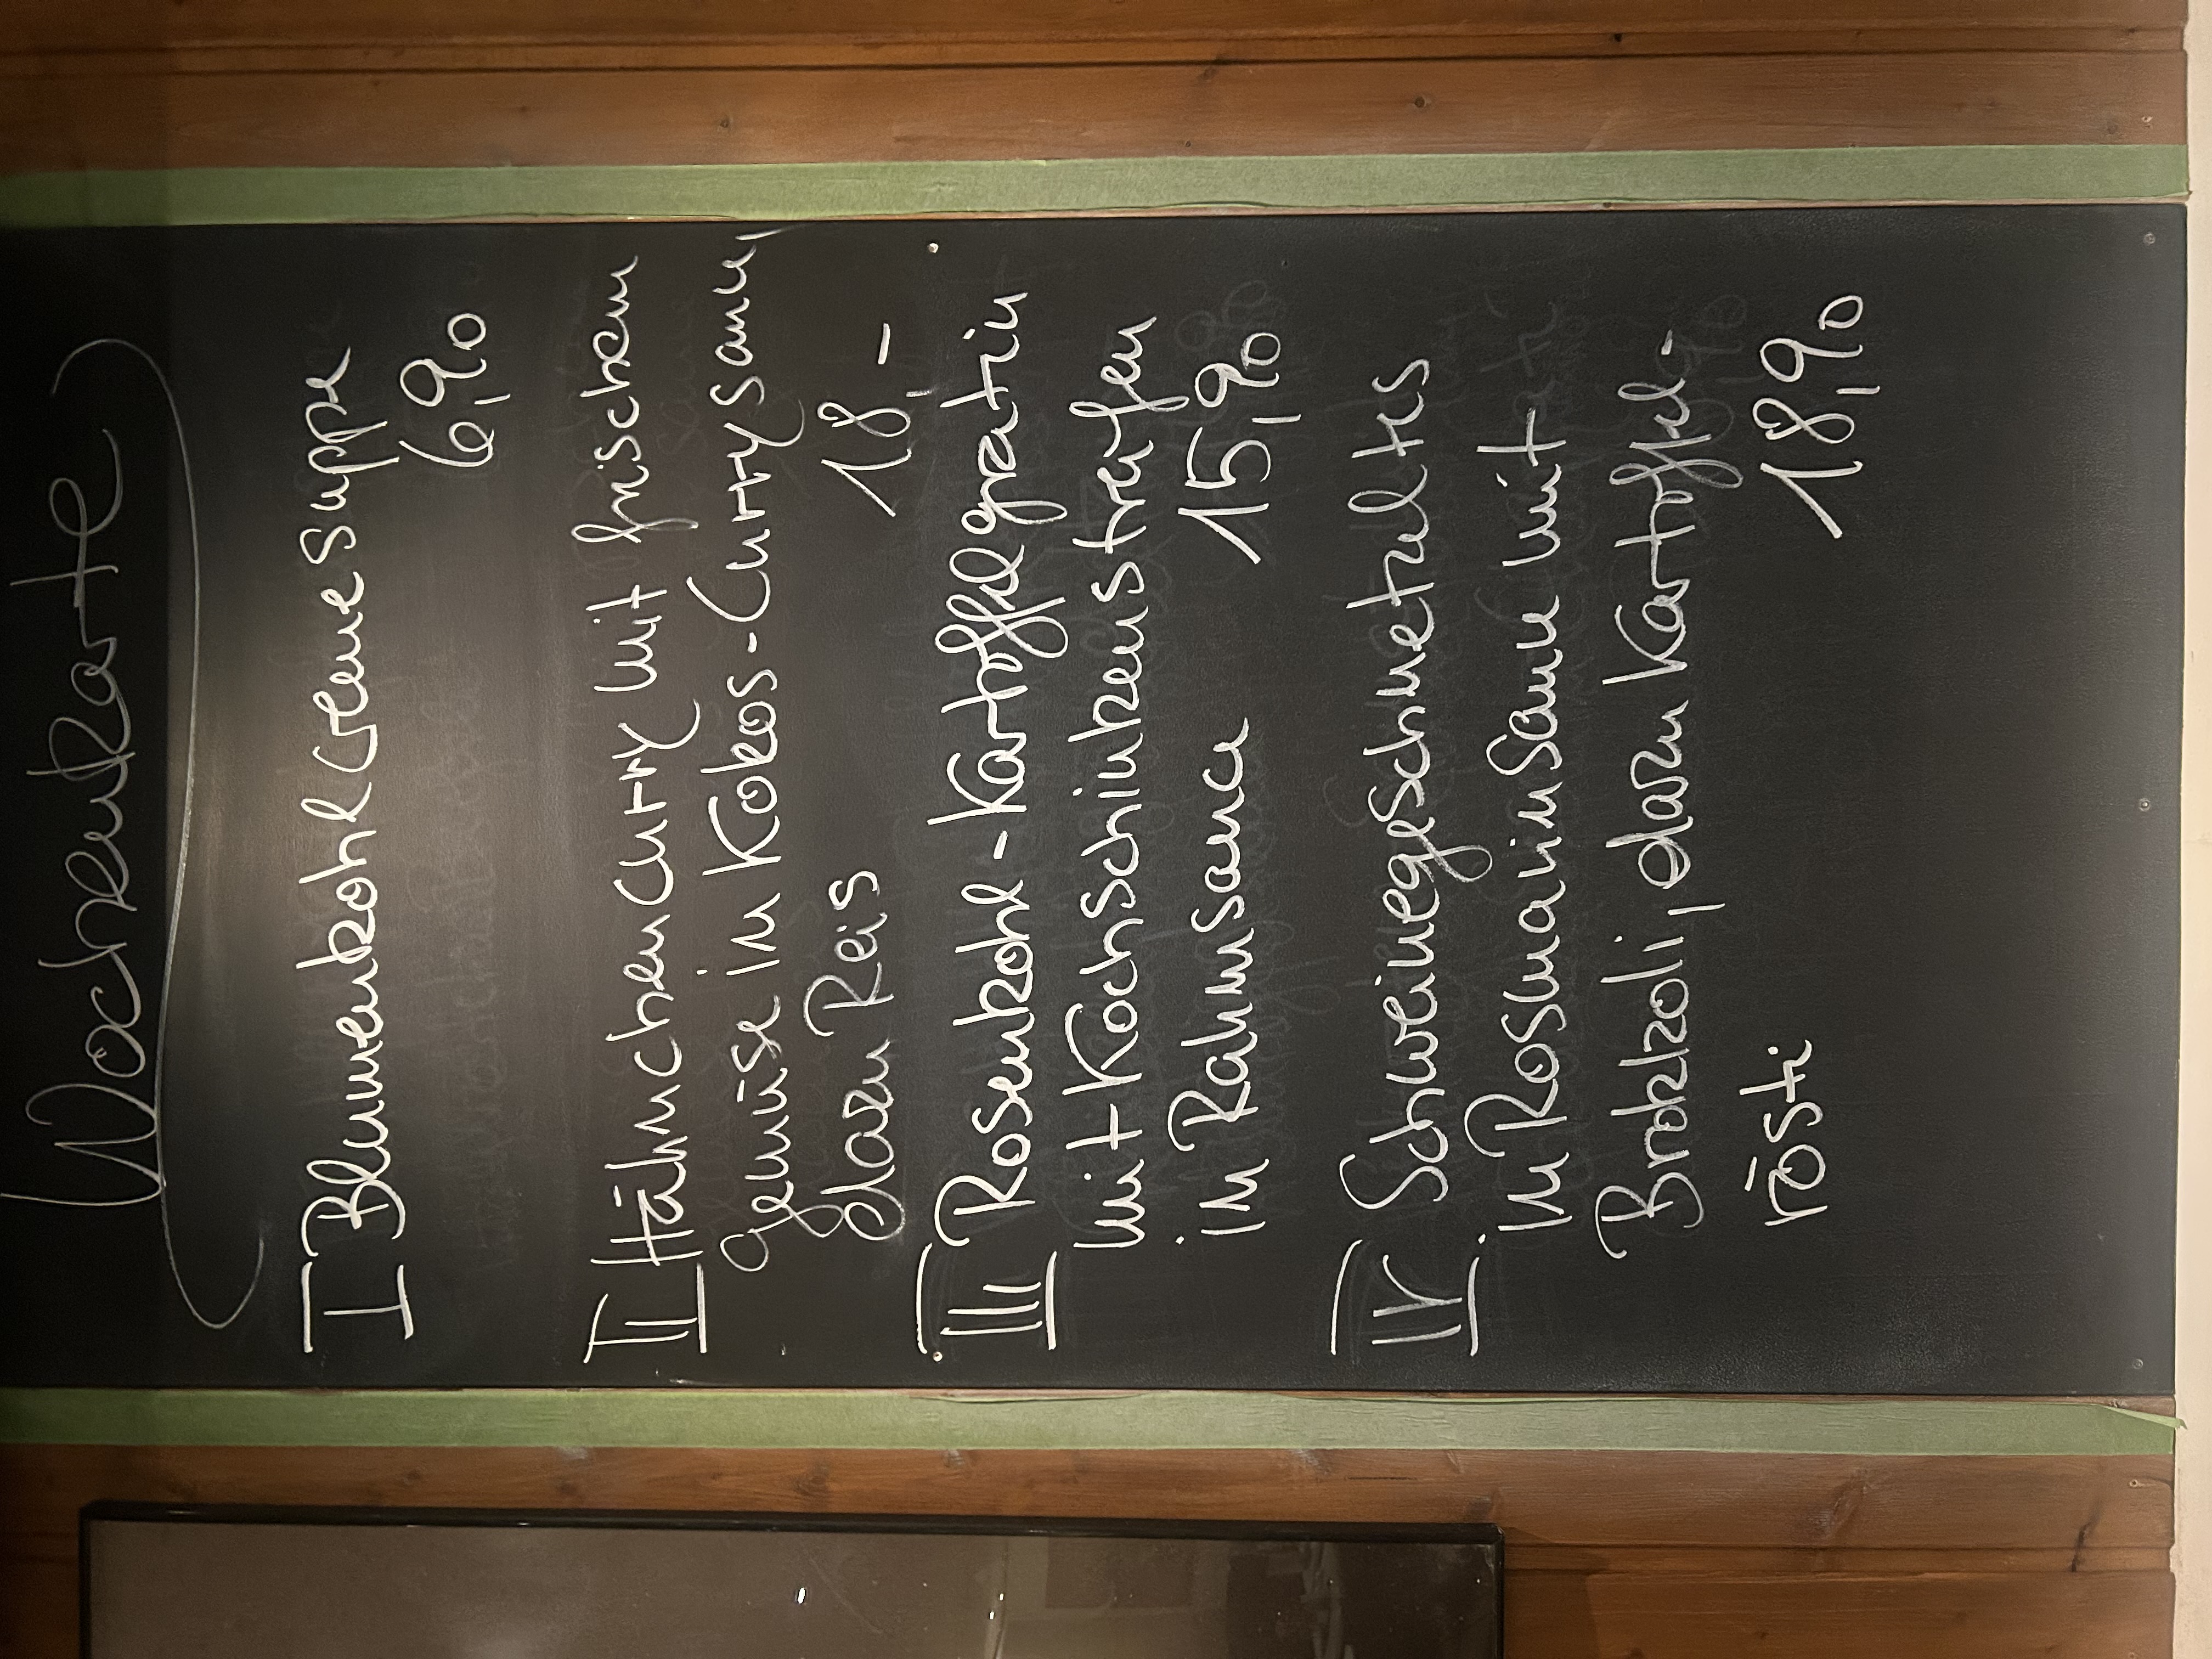 Wochenkarte
I Blumenkohlcremesuppe
6,90
II Hähnchencurry mit frischem
gemüse in Kokos-Currysauce,
dazu Reis 18,-
III Rosenkohl-Kartoffelgratin
mit Kochschinkenstreifen
in Rahmsauce 15,90
IV Schweinegeschnetzeltes
in Rosmarinsauce mit
Brokkoli, dazu Kartoffel-
rösti 18,90